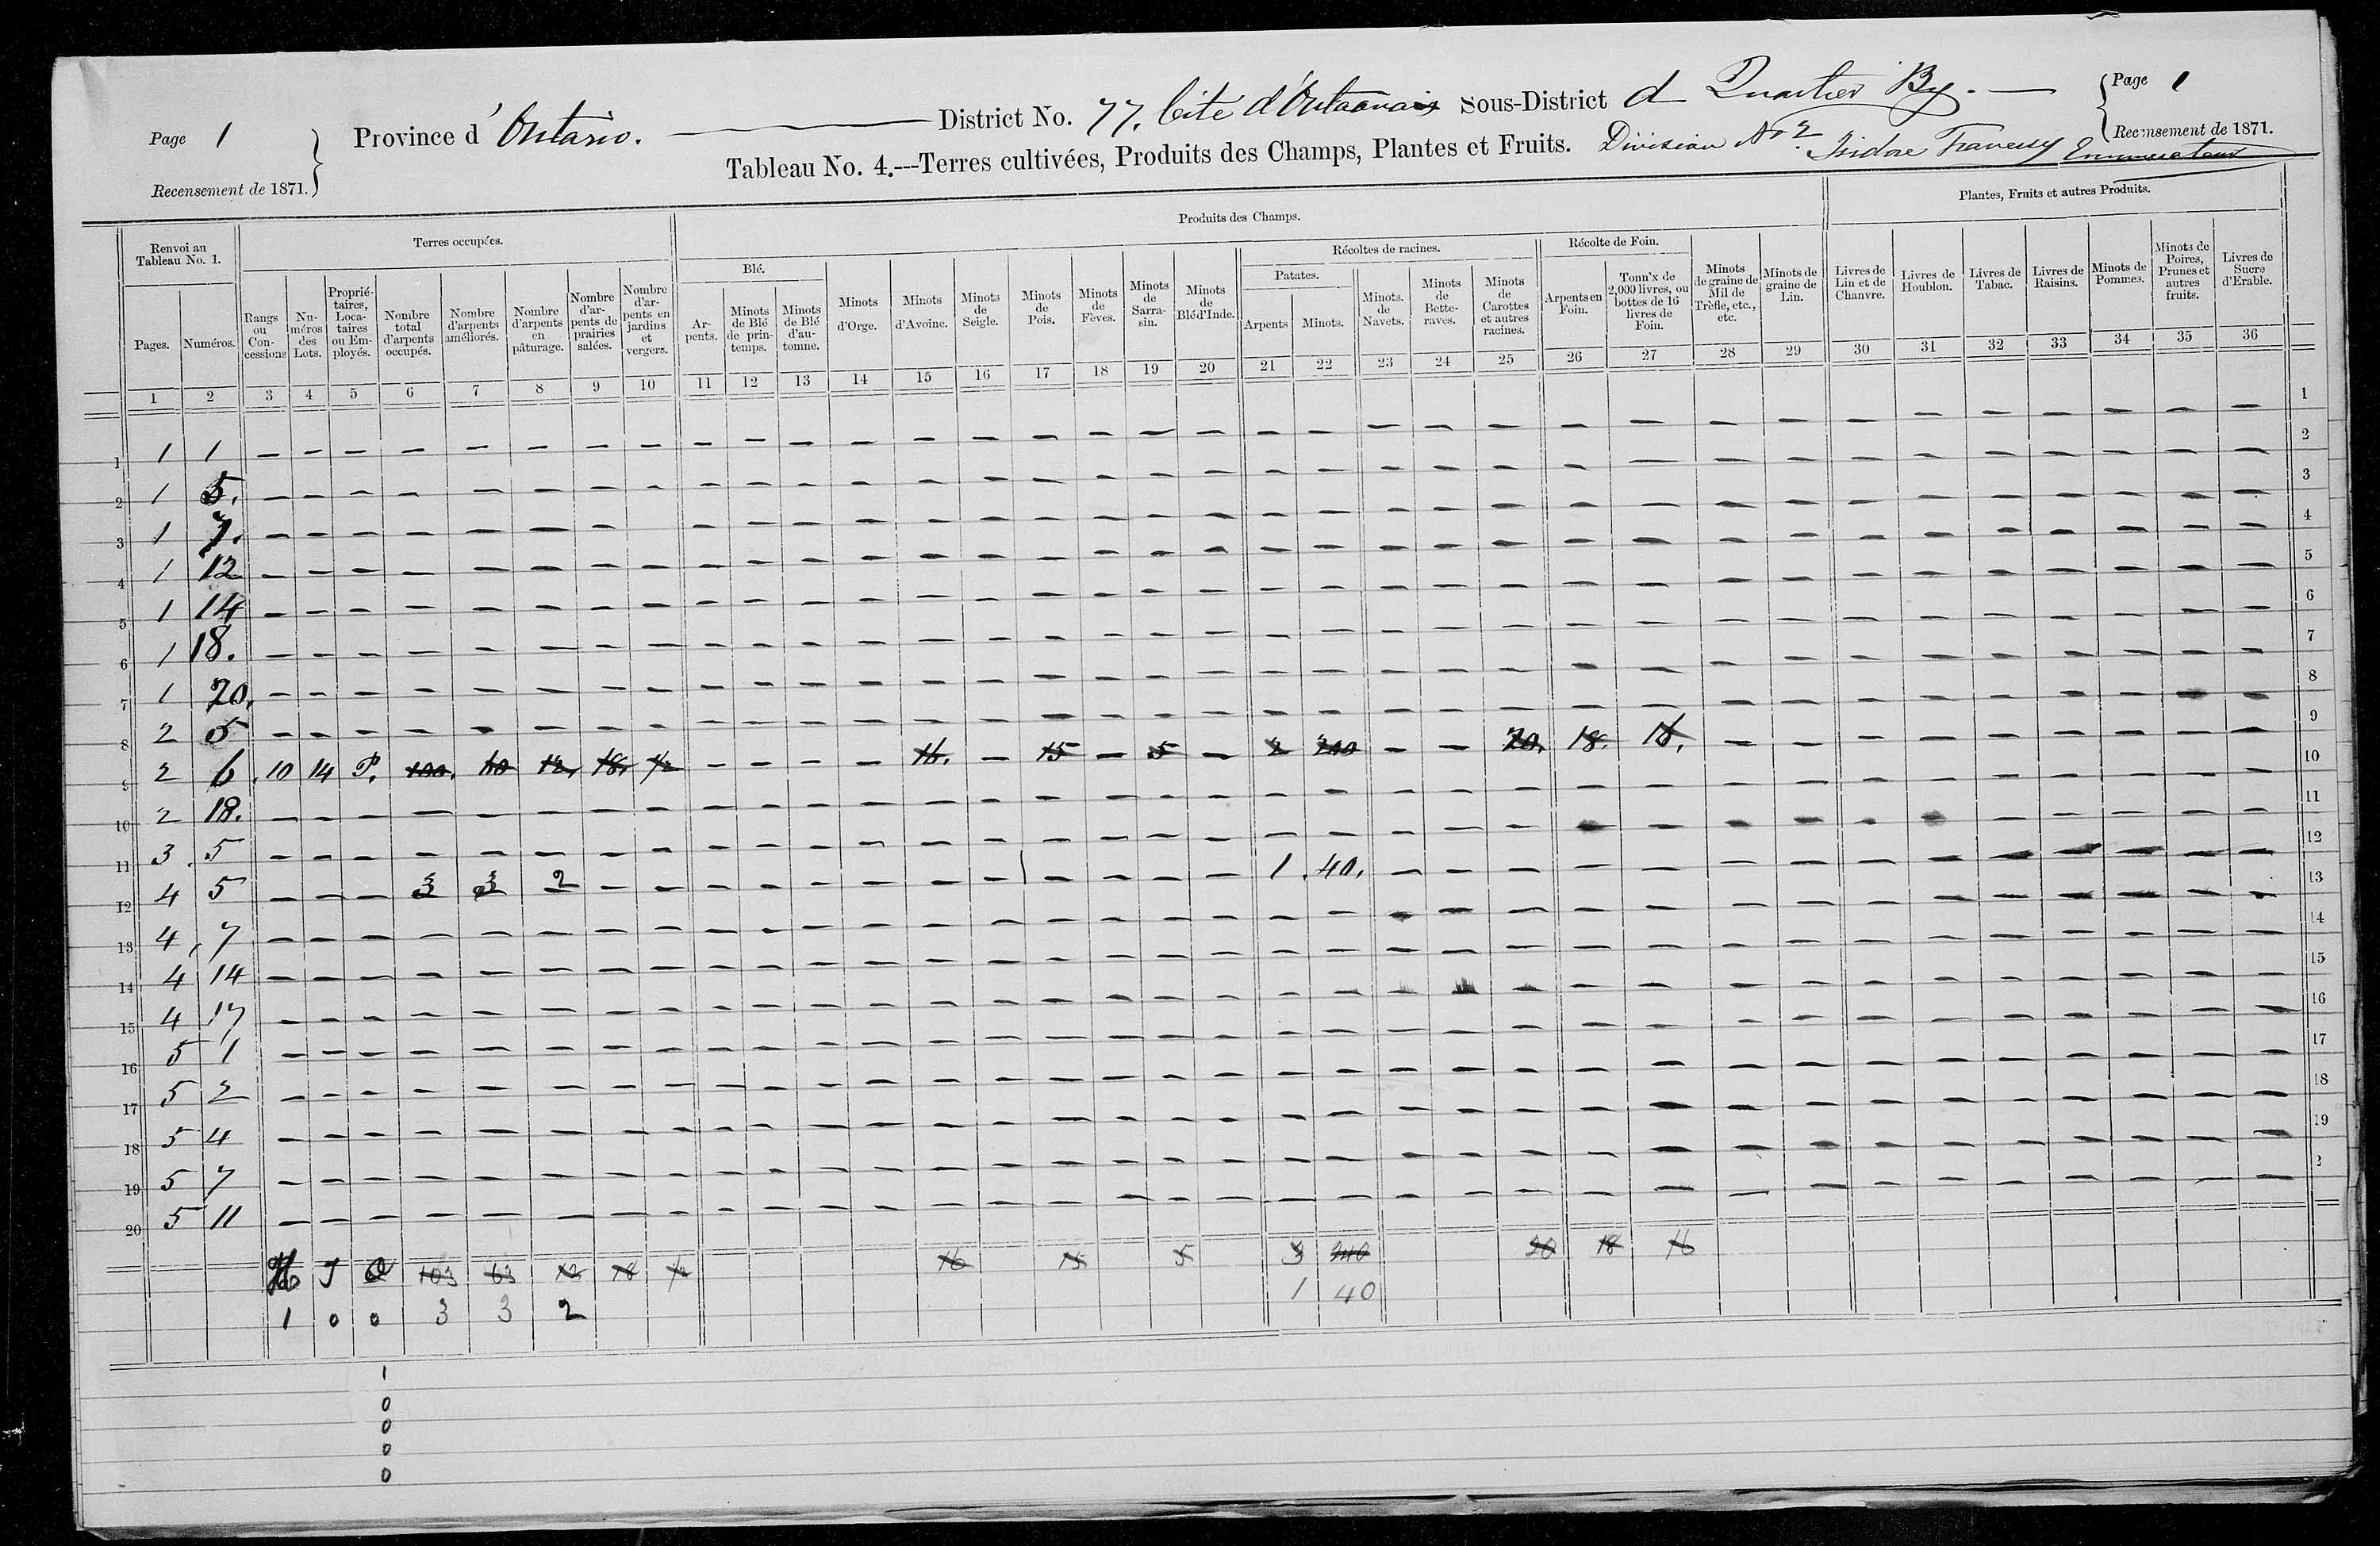 Page 1
Recensement de 1871.
Province d' Ontario.
District No. 77. Cité d'Outaouais Sous-District d Quartier By.
Page 1
Recensement de 1871.
Tableau No. 4.---Terres cultivées, Produits des Champs, Plantes et Fruits. Division No 2 Isidore Traversy Enumerateur
Renvoi au Tableau No. 1.
Terres occupées.
Produits des Champs.
Plantes, Fruits et autres Produits.
Blé.
Récoltes de racines.
Patates.
Récolte de Foin.
Pages.
Numéros.
Rangs ou Concessions
Numéros des Lots.
Propriétaires, Locataires ou Employés.
Nombre total d'arpents occupés.
Nombre d'arpents améliorés.
Nombre d'arpents en pâturage.
Nombre d'arpents de prairies salées.
Nombre d'arpents en jardins et vergers.
Arpents.
Minots de Blé de printemps.
Minots de Blé d'automne.
Minots d'Orge.
Minots d'Avoine.
Minots de Seigle.
Minots de Pois.
Minots de Fèves.
Minots de Sarrasin.
Minots de Bléd'Inde.
Arpents
Minots.
Minots. de Navets.
Minots de Betteraves.
Minots de Carottes et autres racines.
Arpents en Foin.
Tonn'x de 2,000 livres, ou bottes de 16 livres de Foin.
Minots de graine de Mil de Trèfle, etc., etc.
Minots de graine de Lin.
Livres de Lin et de Chanvre.
Livres de Houblon.
Livres de Tabac.
Livres de Raisins.
Minots de Pommes.
Minots de Poires, Prunes et autres fruits.
Livres de Sucre d'Erable.
1 2 3 4 5 6 7 8 9 10 11 12 13 14 15 16 17 18 19 20 21 22 23 24 25 26 27 28 29 30 31 32 33 34 35 36
1 1 1 — — — — — — — — — — — — — — — — — — — — — — — — — — — — — — — — — — 1
2 1 5. — — — — — — — — — — — — — — — — — — — — — — — — — — — — — — — — — — 2
3 1 7. — — — — — — — — — — — — — — — — — — — — — — — — — — — — — — — — — 3
4 1 12 — — — — — — — — — — — — — — — — — — — — — — — — — — — — — — — — — — 4
5 1 14 — — — — — — — — — — — — — — — — — — — — — — — — — — — — — — — — — — 5
6 1 18. — — — — — — — — — — — — — — — — — — — — — — — — — — — — — — — — — — 6
7 1 20. — — — — — — — — — — — — — — — — — — — — — — — — — — — — — — — — — — 7
8 2 5 — — — — — — — — — — — — — — — — — — — — — — — — — — — — — — — — — — 8
9 2 6 10 14 P. 100. 60 12. 18. 1/2 — — — — 16. — 15 — 5 — 2 200 — — 20. 18. 16. — — — — — — — — — 9
10 2 18. — — — — — — — — — — — — — — — — — — — — — — — — — — — — — — — — — — 10
11 3 5 — — — — — — — — — — — — — — — — — — — — — — — — — — — — — — — — — — 11
12 4 5 — — — 3 3 2 — — — — — — — — — — — — 1 40. — — — — — — — — — — — — — — 12
13 4 7 — — — — — — — — — — — — — — — — — — — — — — — — — — — — — — — — — — 13
14 4 14 — — — — — — — — — — — — — — — — — — — — — — — — — — — — — — — — — — 14
15 4 17 — — — — — — — — — — — — — — — — — — — — — — — — — — — — — — — — — — 15
16 5 1 — — — — — — — — — — — — — — — — — — — — — — — — — — — — — — — — — — 16
17 5 2 — — — — — — — — — — — — — — — — — — — — — — — — — — — — — — — — — — 17
18 5 4 — — — — — — — — — — — — — — — — — — — — — — — — — — — — — — — — — — 18
19 5 7 — — — — — — — — — — — — — — — — — — — — — — — — — — — — — — — — — — 19
20 5 11 — — — — — — — — — — — — — — — — — — — — — — — — — — — — — — — — — — 2
103 63 12 18 1/2 16 15 5 3 240 20 18 16
1 0 0 3 3 2 1 40
1
0
0
0
0